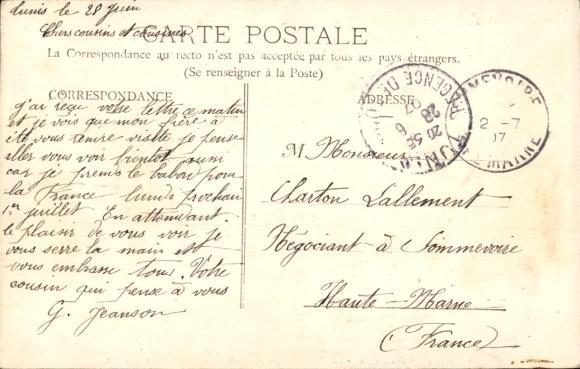 Tunis le 28 juin
Chers cousins et cousines
CARTE POSTALE
La Correspondance au recto n'est pas acceptée par tous les pays étrangers.
(Se renseigner à la Poste)
CORRESPONDANCE
j'ai reçu votre lettre ce matin
et je vois que mon père à
été vous rendre visite je pense
aller vous voir bientot aussi
car je prends le bateau pour
la France lundi prochain
1er juillet En attendant
le plaisir de vous voir je
vous serre la main et
vous embrasse tous. Votre
cousin qui pense à vous
G. Jeanson
ADRESSE
RÉGENCE DE TUNIS
TUNIS
28
07
SOMMEVOIRE
2-7
07
HTE MARNE
M Monsieur
Charton Lallement
Négociant à Sommevoire
Haute-Marne
(France)